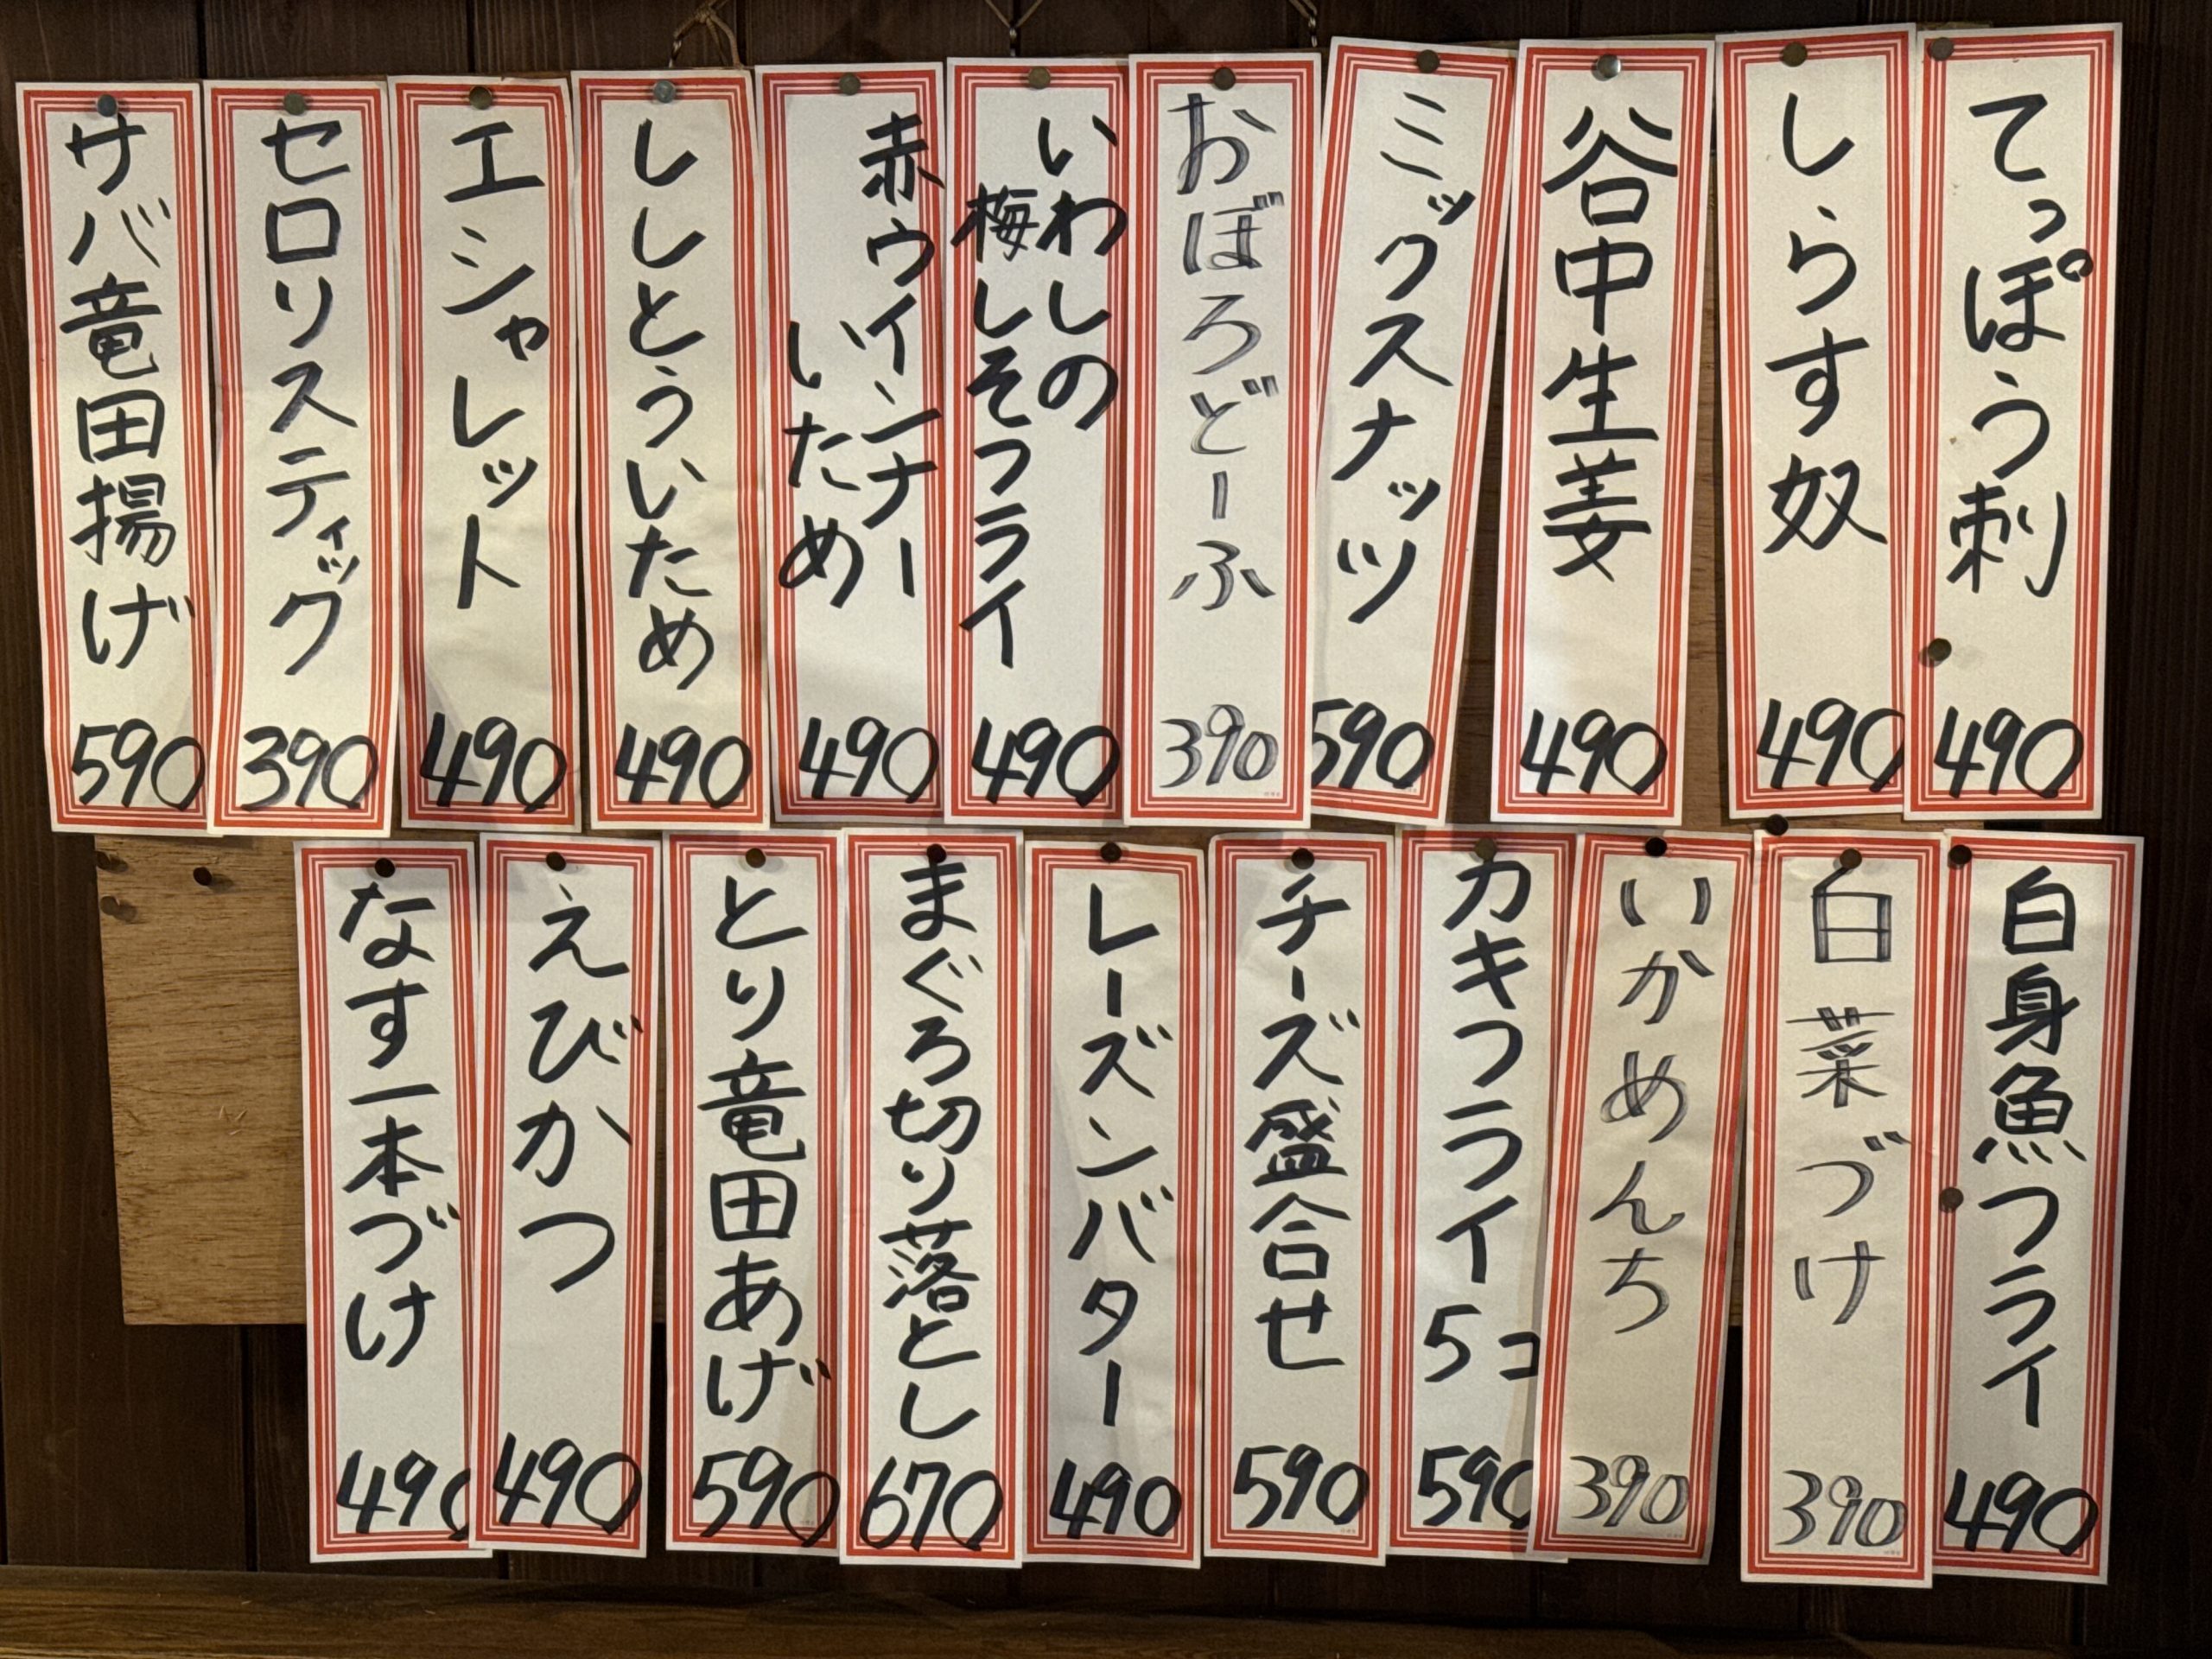 てっぽう刺
490
しらす奴
490
谷中生姜
490
ミックスナッツ
590
おぼろどーふ
390
いわしの
梅しそフライ
490
赤ウインナー
いため
490
ししとういため
490
エシャレット
490
セロリスティック
390
サバ竜田揚げ
590
白身魚フライ
490
白菜づけ
390
いかめんち
390
カキフライ5コ
590
チーズ盛合せ
590
レーズンバター
490
まぐろ切り落とし
670
とり竜田あげ
590
えびかつ
490
なす一本づけ
490